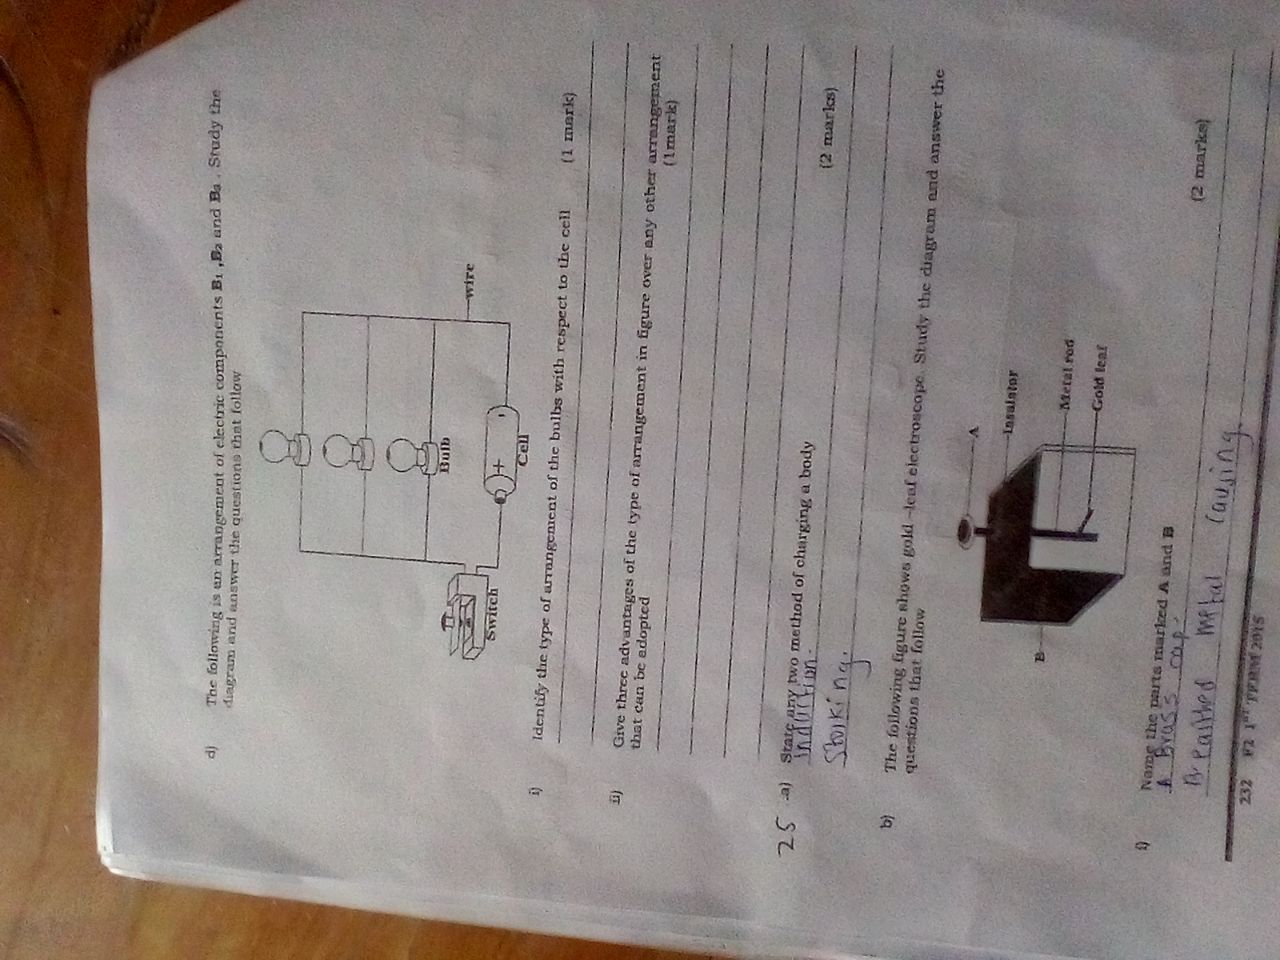 d) The following is an arrangement of electric components B₁ ,B₂ and B₃ . Study the
diagram and answer the questions that follow
wire
Bulb
+
-
Cell
Switch
i) Identify the type of arrangement of the bulbs with respect to the cell (1 mark)
ii) Give three advantages of the type of arrangement in figure over any other arrangement
that can be adopted (1mark)
25 .a) State any two method of charging a body (2 marks)
Induction.
b) The following figure shows gold –leaf electroscope. Study the diagram and answer the
questions that follow
A
Insulator
Metal rod
Gold leaf
B
i) Name the parts marked A and B (2 marks)
A Brass cap.
metal Causing.
232 F2 1ˢᵗ TERM 2015